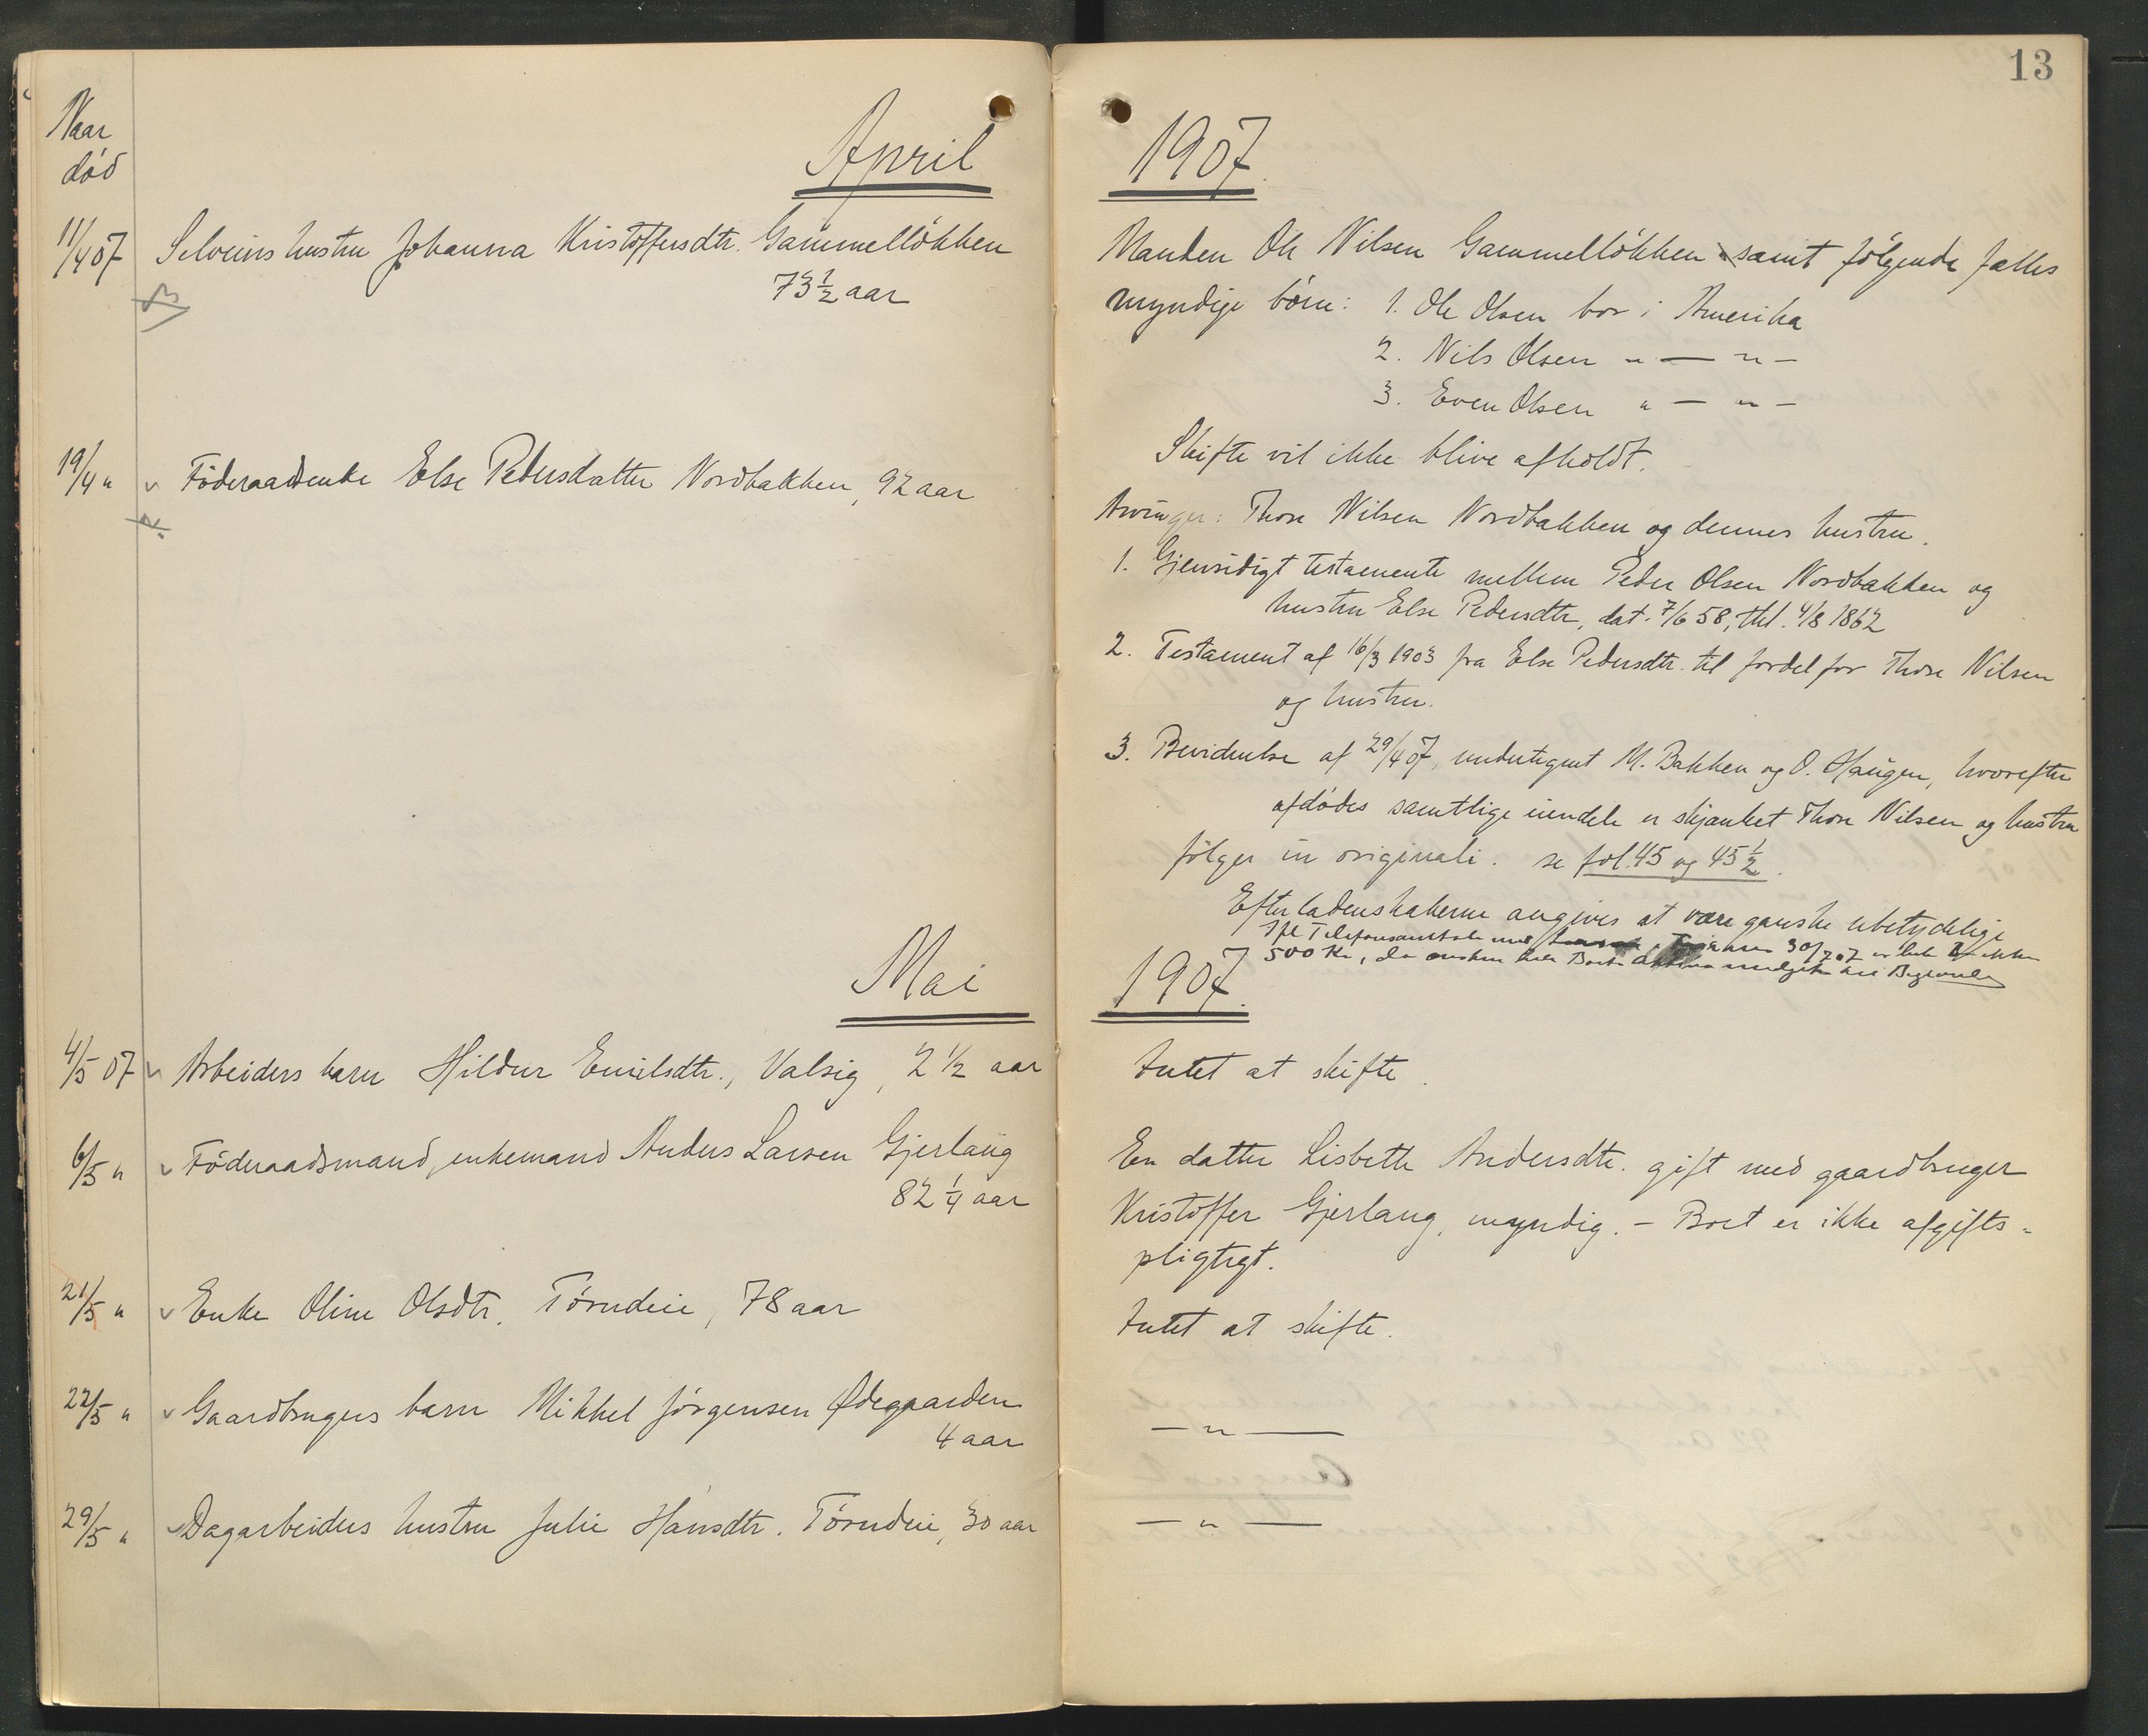 13
Naar
död
April
1907.
11/4 07 Selveiers hustru Johanna Kristoffersdtr. Gammellökken
73 1/2 aar
Manden Ole Nilsen Gammellökken samt fölgende fælles
myndige börn: 1. Ole Olsen bor i Amerika
2. Nils Olsen " — " —
3. Even Olsen " — " —
Skifte vil ikke blive afholdt.
19/4 " v Föderaadsenke Else Pedersdatter Nordbakken, 92 aar
Arvinger: Thore Nilsen Nordbakken og dennes hustru.
1. Gjensidigt testamente mellem Peder Olsen Nordbakken og
hustru Else Pedersdtr, dat. 7/6 58, thl. 4/8 1862
2. Testament af 16/3 1903 fra Else Pedersdtr. til fordel for Thore Nilsen
og hustru.
3. Bevidnelse af 29/4 07, undertegnet M. Bakken og O. Haugen, hvorefter
afdödes samtlige eiendele er skjænket Thore Nilsen og hustru
fölger in originali. se fol. 45 og 45 1/2.
Efterladenskaberne angives at være ganske ubetydelige
Ifl Telefonsamtale med 30/7 07 er ikke
500 Kr,
Mai
1907.
4/5 07 v Arbeiders barn Hildur Emilsdtr., Valsig, 2 1/2 aar
Intet at skifte.
6/5 " v Föderaadsmand, enkemand Anders Larsen Gjerlaug
82 1/4 aar
En datter Lisbeth Andersdtr. gift med gaardbruger
Kristoffer Gjerlaug, myndig. – Boet er ikke afgifts=
pligtigt.
21/5 " v Enke Oline Olsdtr. Törudeie, 78 aar
Intet at skifte.
22/5 " v Gaardbrugers barn Mikkel Jörgensen Ødegaarden
4 aar
— " —
29/5 " v Dagarbeiders hustru Julie Hansdtr. Törudeie, 30 aar
— " —